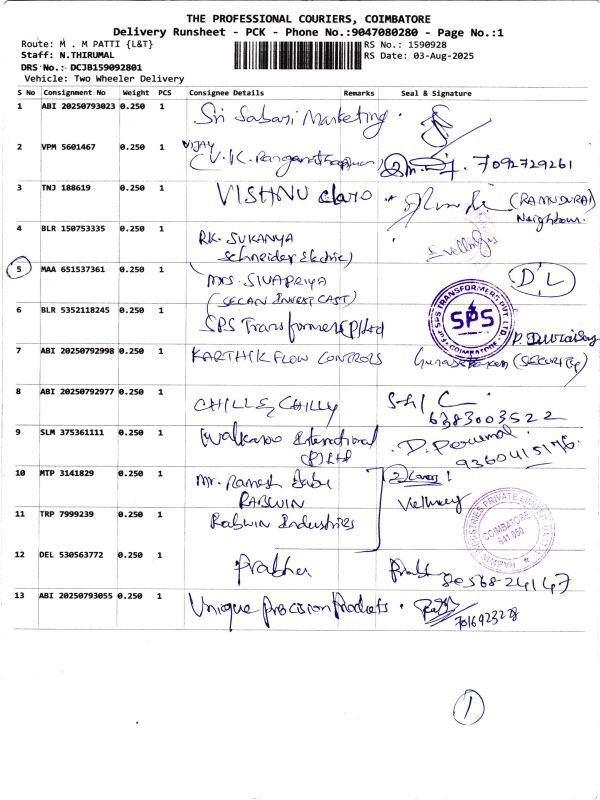 THE PROFESSIONAL COURIERS, COIMBATORE
Delivery Runsheet - PCK - Phone No.:9047080280 - Page No.:1
Route: M . M PATTI {L&T}
RS No.: 1590928
Staff: N.THIRUMAL
RS Date: 03-Aug-2025
DRS No.: DCJB159092801
Vehicle: Two Wheeler Delivery
S No Consignment No Weight PCS Consignee Details Remarks Seal & Signature
1 ABI 20250793023 0.250 1 Sri Sabari Marketing
2 VPM 5601467 0.250 1 VIJAY
(V.K. 7092729261
3 TNJ 188619 0.250 1 VISHNU claro (RAMNDURAI)
Neighbour.
4 BLR 150753335 0.250 1 RK. SUKANYA
Schneider Electric)
5 MAA 651537361 0.250 1 MRS. SIVAPRIYA D/L
(SECAN INVEST CAST)
6 BLR 5352118245 0.250 1 SPS Transformers(P)Ltd
SPS TRANSFORMERS PVT LTD
SPS
COIMBATORE
7 ABI 20250792998 0.250 1 KARTHIK FLOW CONTROLS (SECURITY)
8 ABI 20250792977 0.250 1 CHILLE CHILLY
6383003522
9 SLM 375361111 0.250 1 Walkaroo International
(P)Ltd
D. Perumal
9360415176
10 MTP 3141829 0.250 1 Mr. Ramesh Babu
RABWIN
11 TRP 7999239 0.250 1 Rabwin Industries
RABWIN INDUSTRIES PRIVATE LIMITED
COIMBATORE
641 050
12 DEL 530563772 0.250 1 Prabhu
8056824147
13 ABI 20250793055 0.250 1 Unique Precision Products
1